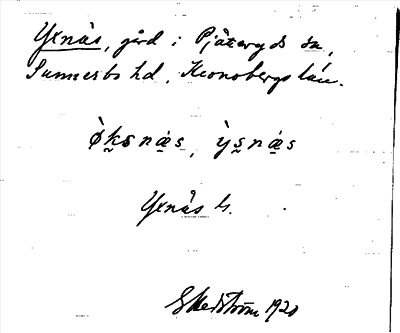 Yxnås, gård i Pjätteryds sn,
Sunnerbo hd, Kronobergs län.
o̊ksnås, ỳsnås
Yxnås by.
E Hedström 1920